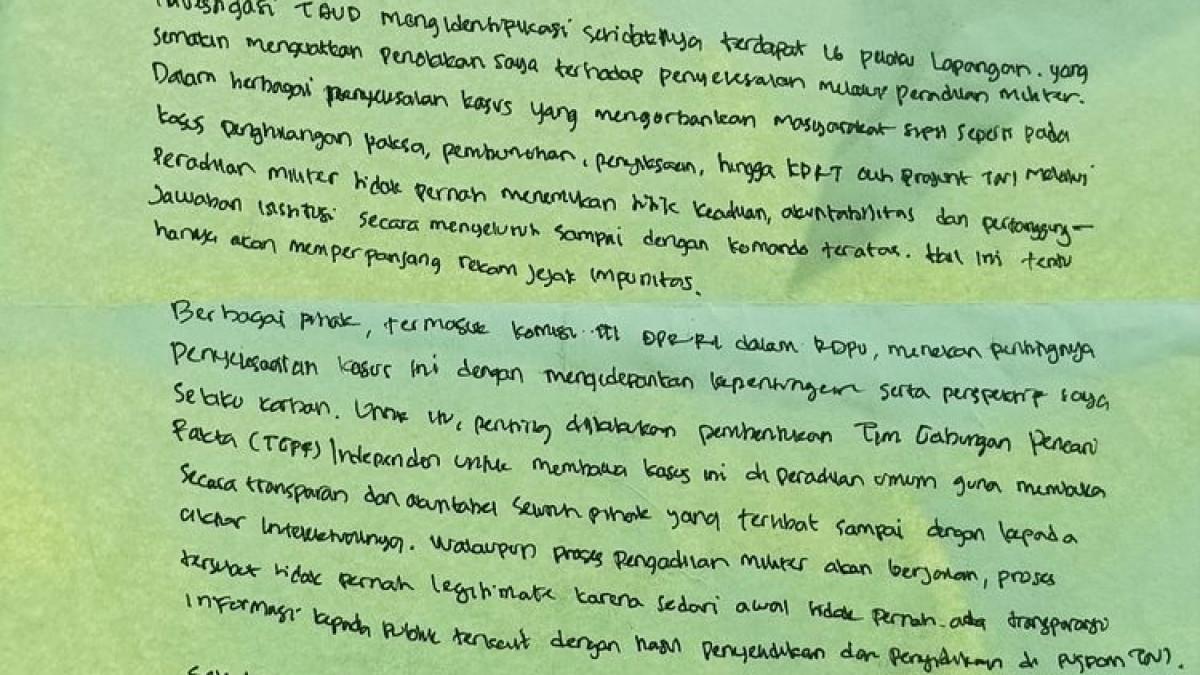 Investigasi TAUD mengidentifikasi setidaknya terdapat 16 pelaku lapangan. yang
semakin menguatkan penolakan saya terhadap penyelesaian melalui peradilan militer.
Dalam berbagai penyelesaian kasus yang mengorbankan masyarakat sipil seperti pada
kasus penghilangan paksa, pembunuhan, penyiksaan, hingga KDRT oleh prajurit TNI melalui
Peradilan militer tidak pernah menemukan titik keadilan, akuntabilitas dan pertanggung-
Jawaban institusi secara menyeluruh sampai dengan komando teratas. Hal ini tentu
hanya akan memperpanjang rekam jejak impunitas.
Berbagai pihak, termasuk komisi III DPR RI dalam RDPU, menekan pentingnya
penyelesaian kasus ini dengan mengedepankan kepentingan serta perspektif saya
selaku korban. Untuk itu, penting dilakukan pembentukan Tim Gabungan Pencari
Fakta (TGPF) Independen untuk membawa kasus ini di peradilan umum guna membuka
secara transparan dan akuntabel seluruh pihak yang terlibat sampai dengan kepada
aktor intelektualnya. Walaupun proses pengadilan militer akan berjalan, proses
tersebut tidak pernah legitimate karena sedari awal tidak pernah ada transparansi
informasi kepada publik terkait dengan hasil penyelidikan dan penyidikan di puspom TNI.